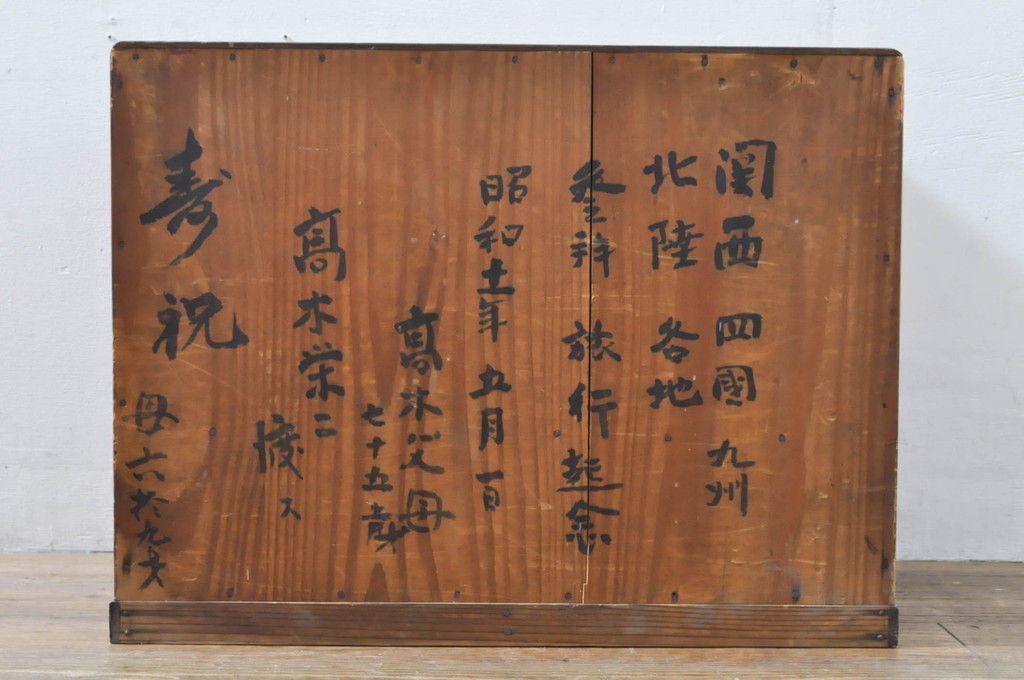 関西四國九州
北陸各地
参拜旅行起念
昭和十一年五月一日
高木父母
七十五歳
高木栄二
渡ス
寿祝
母六拾九才